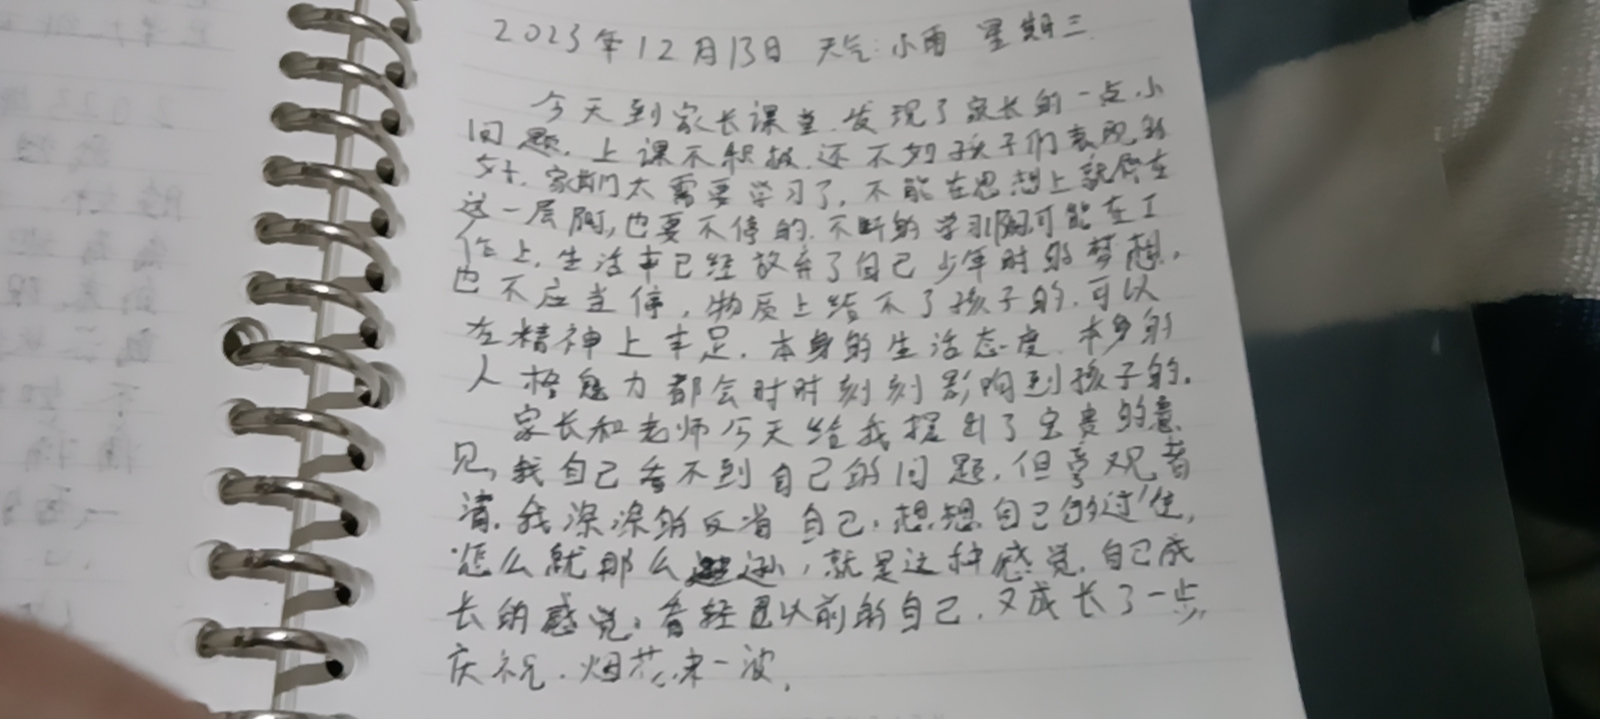 2023年12月13日 天气:小雨 星期三
今天到家长课堂.发现了家长的一点小
问题.上课不积极.还不如孩子们表现的
好.家长们太需要学习了,不能在思想上就停在
这一层阿,也要不停的.不断的学习啊可能在工
作上.生活中已经放弃了自己少年时的梦想.
也不应当停,物质上给不了孩子的.可以
在精神上丰足.本身的生活态度.本身的
人格魅力都会时时刻刻影响到孩子的.
家长和老师今天给我提出了宝贵的意
见,我自己看不到自己的问题.但旁观者
清.我深深的反省自己.想想自己的过往,
怎么就那么逊,就是这种感觉.自己成
长的感觉.看轻蔑以前的自己.又成长了一步,
庆祝.烟花来一波.